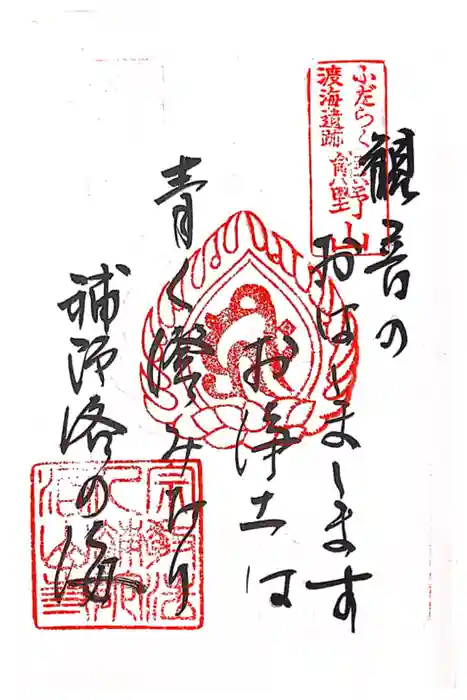 ふだらく
渡海遺跡
熊野山
観音の
おはしまします
お浄土は
青く澄みたり
補陀洛の海